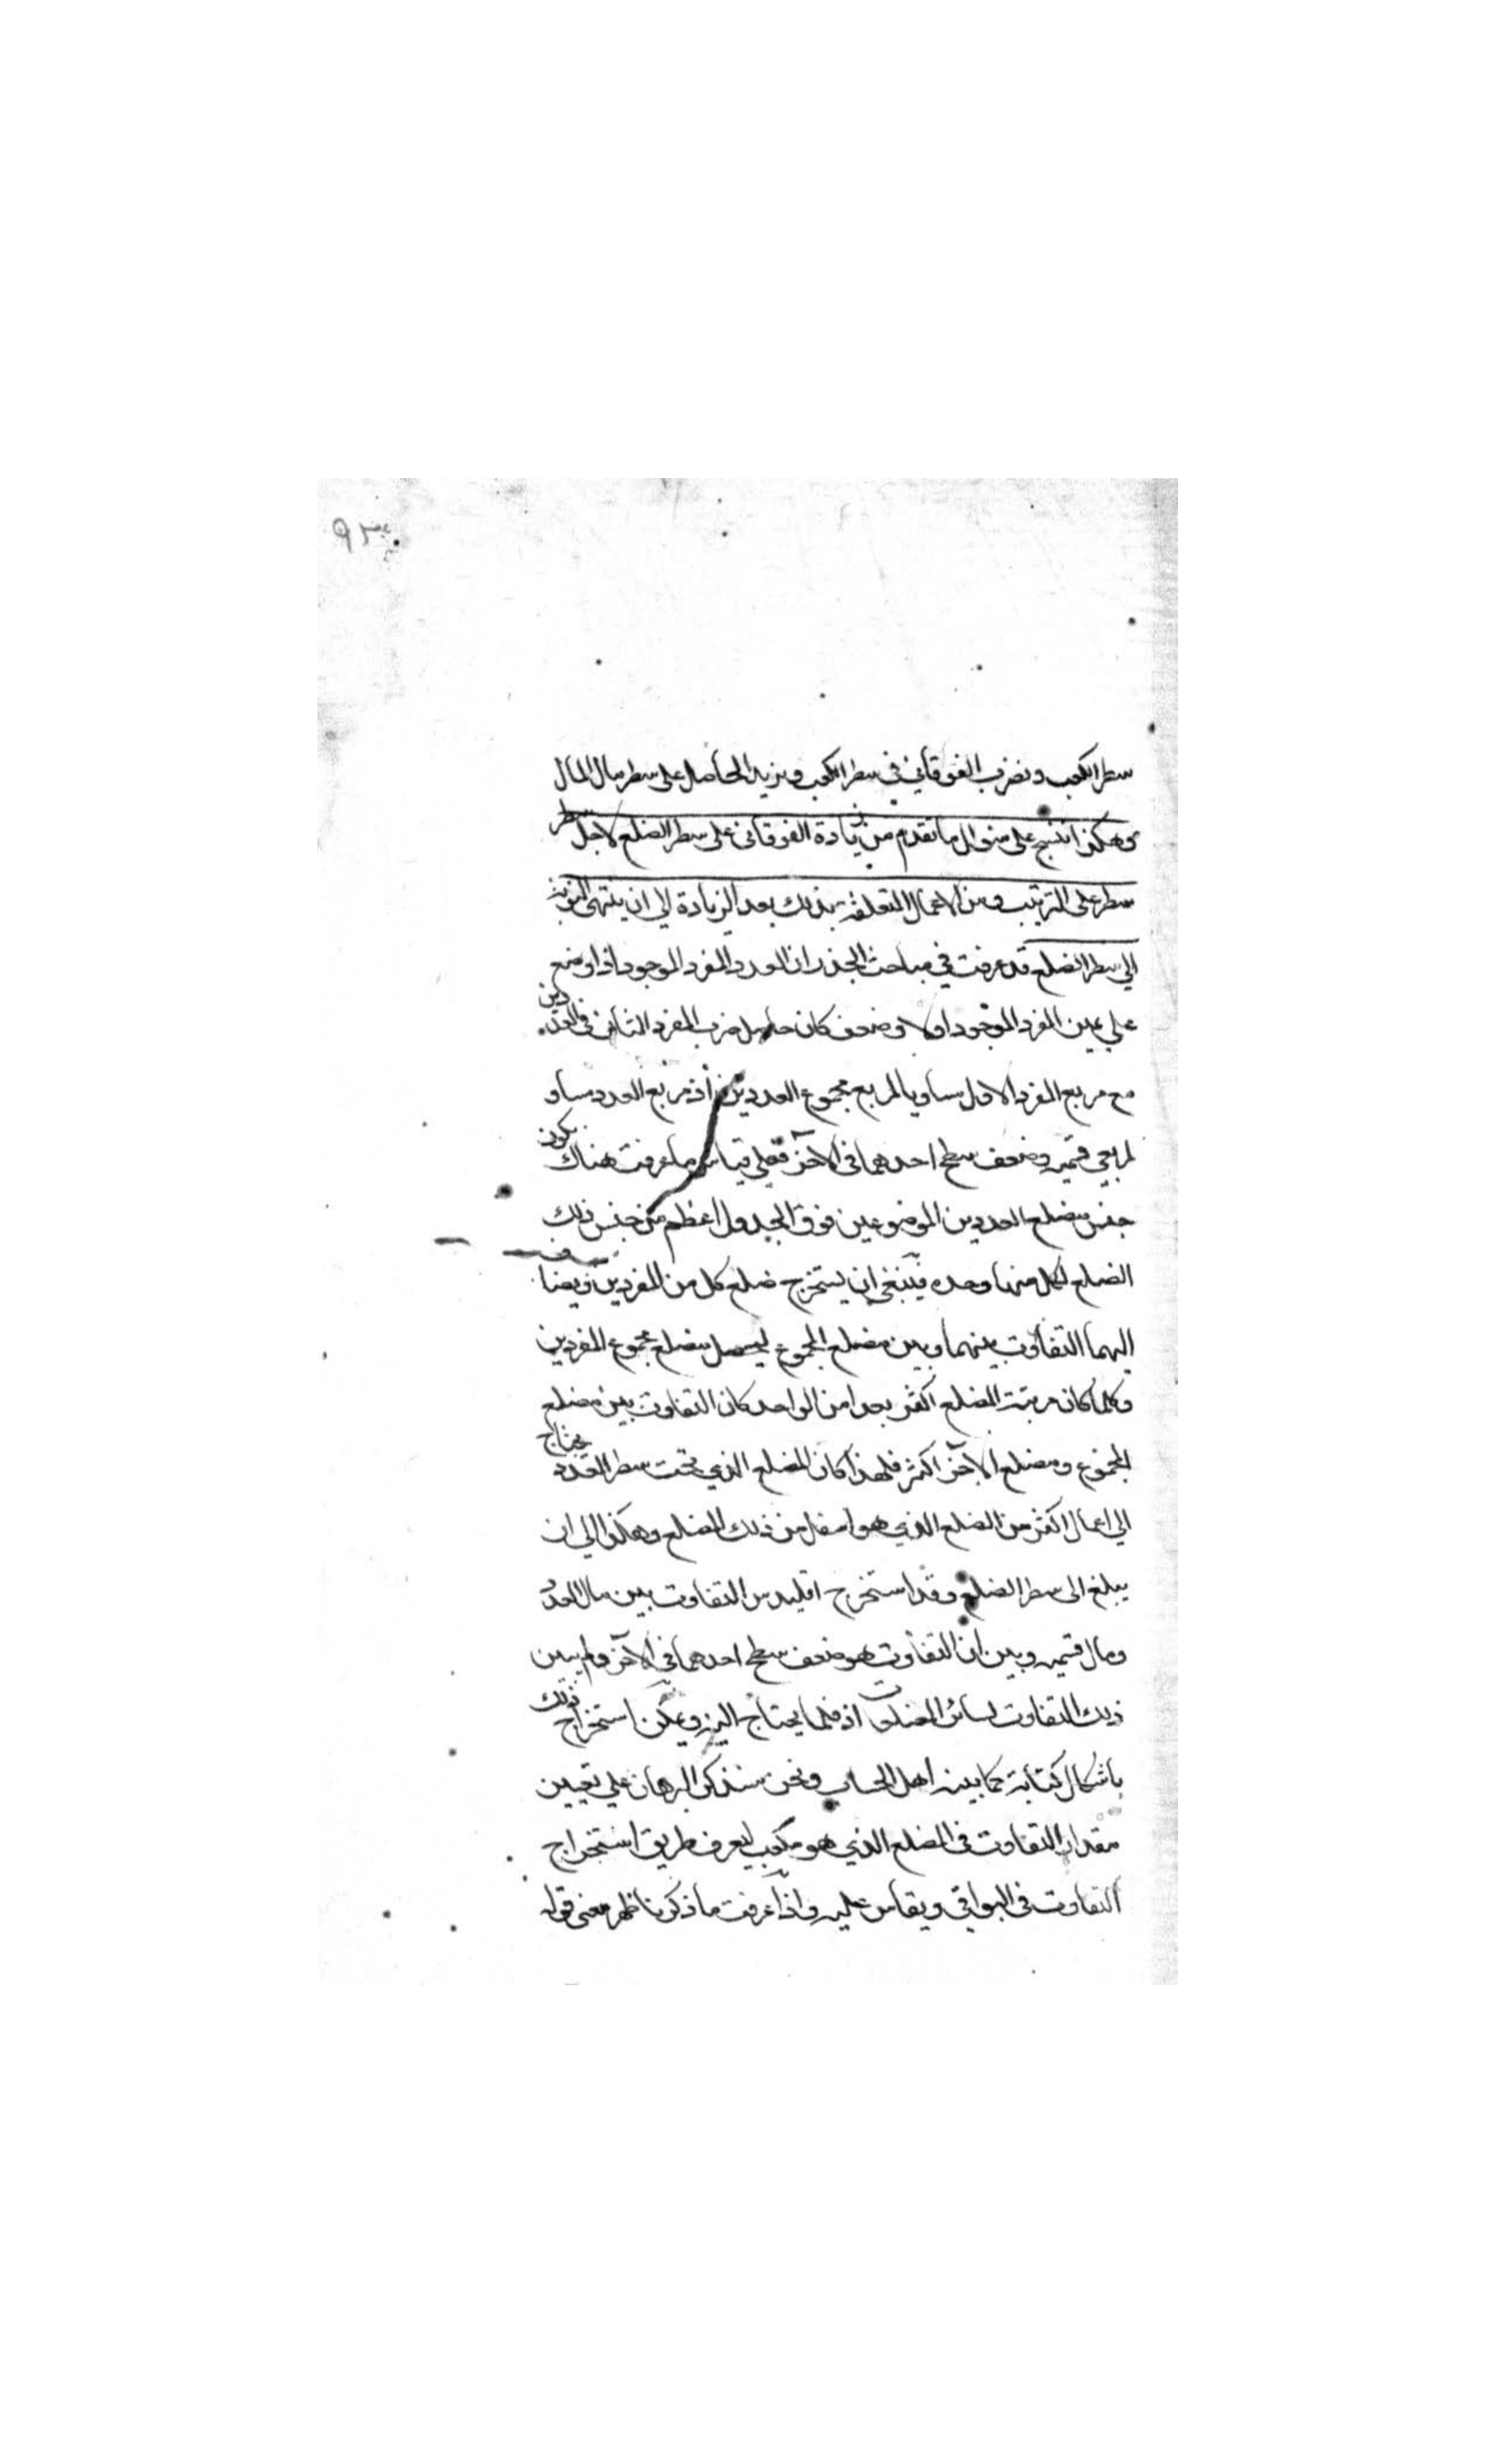 سطر الكعب ونضرب الفوقاني في سطر الكعب ونزيد الحاصل على سطر مال المال
وهكذا ننسج على منوال ما تقدم من زيادة الفوقاني على سطر الضلع لاجل سطر
سطر على الترتيب ومن الاعمال المتعلقة بذلك بعد الزيادة الي ان ينتهى النوبة
الي سطر الضلع قد عرفت في مباحث الجذر ان العدد المفرد الموجود اذا وضع
علي يمين المفرد الموجود اولا وضعف كان حاصل ضرب المفرد الثاني في العددين
مع مربع المفرد الاول مساويا لمربع مجموع العددين اذ مربع العدد مساو
لمربعي قسميه وضعف سطح احدهما في الآخر فعلي قياس ما عرفت هناك يكون
جنس مضلع العددين الموضوعين فوق الجدول اعظم من جنس ذلك
الضلع لكل منهما وحده فينبغي ان يستخرج ضلع كل من المفردين ويضاف
اليهما التفاوت بينهما وبين مضلع المجموع ليحصل مضلع مجموع المفردين
وكلما كان مرتبة المضلع اكثر بعدا من الواحد كان التفاوت بين مضلع
المجموع ومضلع الآخر اكثر فلهذا كان المضلع الذي تحت سطر العدد يحتاج
الي اعمال اكثر من الضلع الذي هو اسفل من ذلك المضلع وهكذا الي ان
يبلغ الى سطر الضلع وقد استخرج اقليدس التفاوت بين مال العدد
ومال قسميه وبين ان التفاوت هو ضعف سطح احدهما في الآخر ولم يبين
ذلك التفاوت لسائر المضلعات اذ قلما يحتاج اليه ويمكن استخراج ذلك
باشكال كتابة كما بينه اهل الحساب ونحن سنذكر البرهان علي تعيين
مقدار التفاوت في المضلع الذي هو مكعب ليعرف طريق استخراج
التفاوت في البواقي ويقاس عليه واذا عرفت ما ذكرنا ظهر معنى قوله